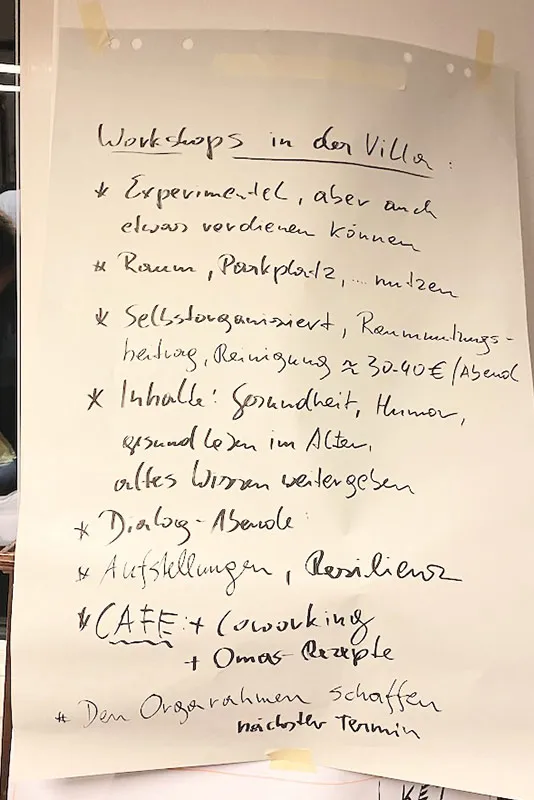 Workshops in der Villa:
* Experimentel, aber auch
etwas verdienen können
* Raum, Parkplatz, ... nutzen
* Selbstorganisiert, Raumnutzungs-
beitrag, Reinigung ≈ 30-40 € / Abend
* Inhalte: Gesundheit, Humor,
gesund leben im Alter,
altes Wissen weitergeben
* Dialog-Abende:
* Aufstellungen, Resilienz
* CAFE: + Coworking
+ Omas-Rezepte
* Den Orgarahmen schaffen
nächster Termin
KEL